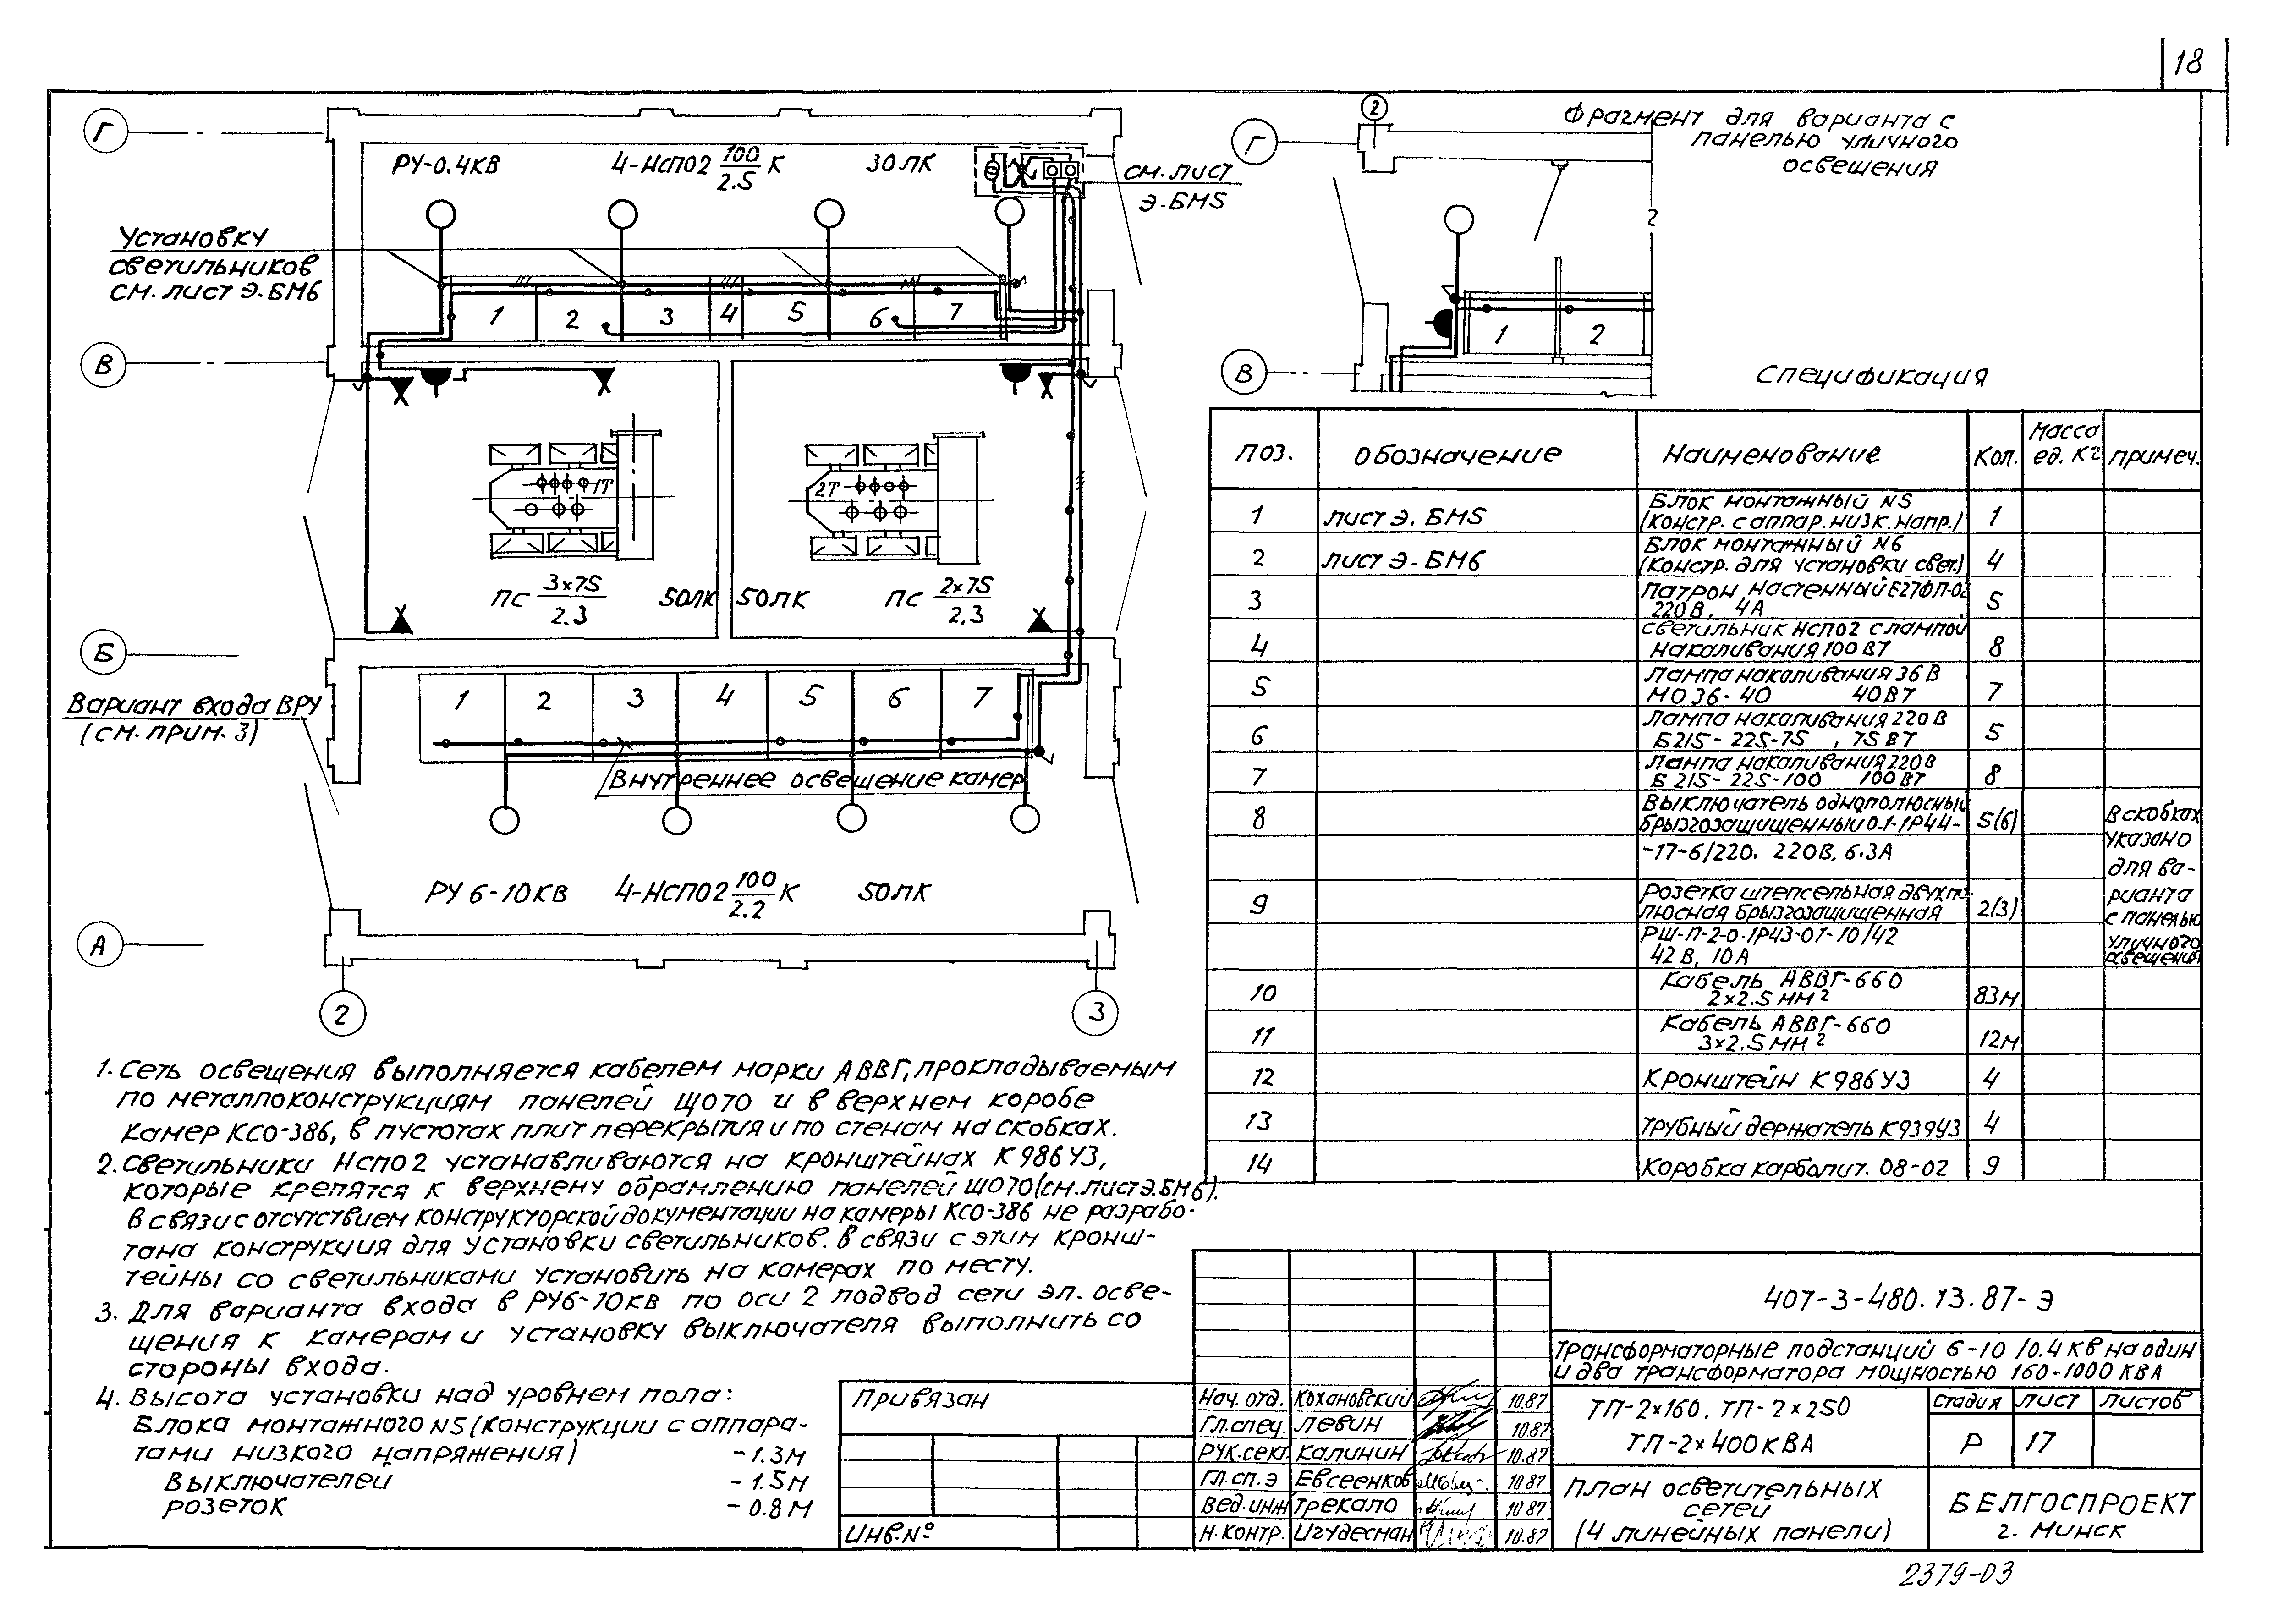 18
Г
РУ-0.4КВ
4-НСПО2 100/2.5 К
30 ЛК
см. лист
Э. БМ5
Установку
светильников
см. лист Э. БМ6
1 2 3 4 5 6 7
В
1Т
2Т
ПС 3×75/2.3
50ЛК
50ЛК
ПС 2×75/2.3
Б
Вариант входа ВРУ
(см. прим. 3)
1 2 3 4 5 6 7
Внутреннее освещение камер
РУ 6-10КВ
4-НСПО2 100/2.2 К
50ЛК
А
2
3
Фрагмент для варианта с
панелью уличного
освещения
2
Г
2
1 2
В
Спецификация
Поз. Обозначение Наименование Кол. Масса ед. кг Примеч.
1 лист Э. БМ5 Блок монтажный N5 1
(констр. с аппар. низк. напр.)
2 лист Э. БМ6 Блок монтажный N6 4
(констр. для установки свет.)
3 Патрон настенный Е27ФП-02 5
220В, 4А
4 Светильник НСПО2 с лампой 8
накаливания 100 ВТ
5 Лампа накаливания 36 В 7
МО 36-40 40 ВТ
6 Лампа накаливания 220 В 5
Б215-225-75, 75 ВТ
7 Лампа накаливания 220В 8
Б 215-225-100 100 ВТ
8 Выключатель однополюсный 5(6) В скобках
брызгозащищенный 0.1-1Р44- указано
-17-6/220. 220В, 6.3А для ва-
9 Розетка штепсельная двухпо- 2(3) рианта
люсная брызгозащищенная с панелью
РШ-П-2-0-1Р43-01-10/42 уличного
42 В, 10А освещения
10 Кабель АВВГ-660 83м
2×2.5 мм²
11 Кабель АВВГ-660 12м
3×2.5 мм²
12 Кронштейн К986У3 4
13 Трубный держатель К939У3 4
14 Коробка карболит. 08-02 9
1. Сеть освещения выполняется кабелем марки АВВГ, прокладываемым
по металлоконструкциям панелей ЩО70 и в верхнем коробе
камер КСО-386, в пустотах плит перекрытия и по стенам на скобках.
2. Светильники НСПО2 устанавливаются на кронштейнах К986У3,
которые крепятся к верхнему обрамлению панелей ЩО70 (см. лист Э.БМ6).
В связи с отсутствием конструкторской документации на камеры КСО-386 не разрабо-
тана конструкция для установки светильников. В связи с этим кронш-
тейны со светильниками установить на камерах по месту.
3. Для варианта входа в РУ6-10КВ по оси 2 подвод сети эл. осве-
щения к камерам и установку выключателя выполнить со
стороны входа.
4. Высота установки над уровнем пола:
Блока монтажного N5 (конструкции с аппара-
тами низкого напряжения) -1.3м
Выключателей -1.5м
Розеток -0.8м
Привязан
Инв. №
407-3-480.13.87-Э
Трансформаторные подстанций 6-10/0.4 КВ на один
и два трансформатора мощностью 160-1000 КВА
Нач. отд. Кохановский 10.87
Гл. спец. Левин 10.87
Рук. сект. Калинин 10.87
Гл. сп. Э Евсеенков 10.87
Вед. инж Трекало 10.87
Н. контр. Игудесман 10.87
ТП-2×160, ТП-2×250
ТП-2×400КВА
Стадия Лист Листов
Р 17
План осветительных
сетей
(4 линейных панели)
БЕЛГОСПРОЕКТ
г. Минск
2379-03